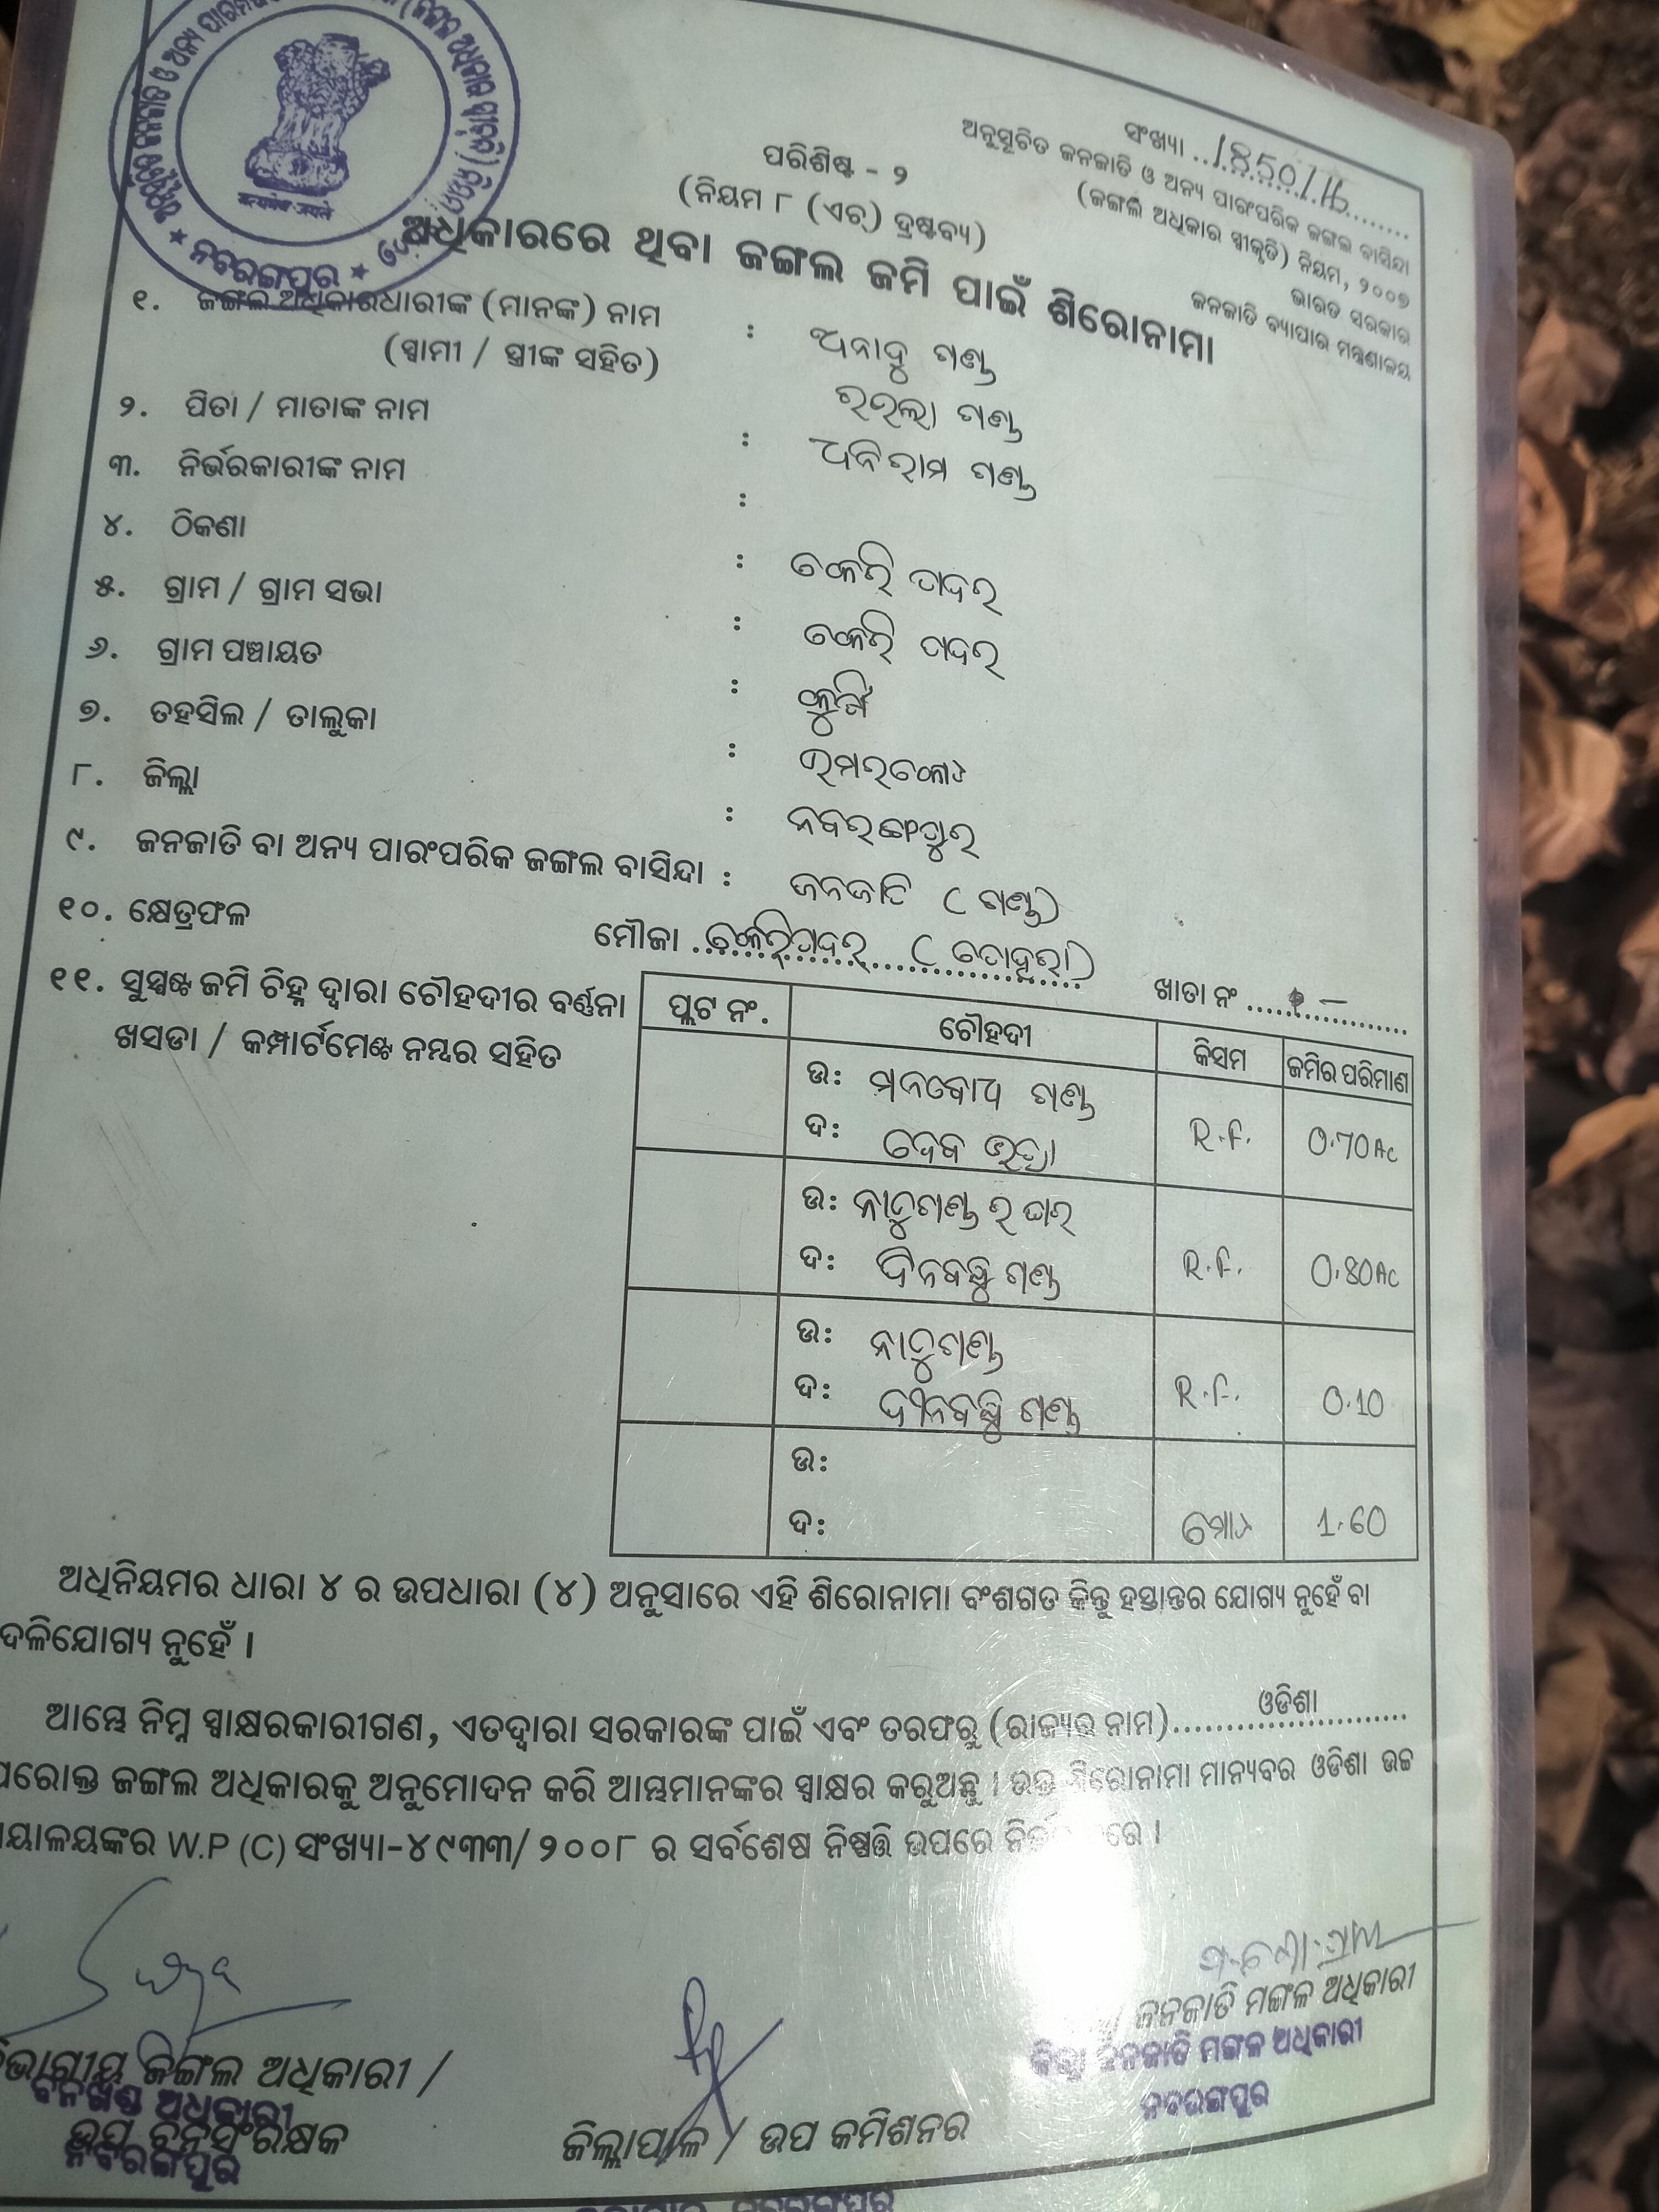 ସଂଖ୍ୟା .. 1850/16
ଅନୁସୂଚିତ ଜନଜାତି ଓ ଅନ୍ୟ ପାରଂପରିକ ଜଙ୍ଗଲ ବାସିନ୍ଦା
(ଜଙ୍ଗଲ ଅଧିକାର ସ୍ୱୀକୃତି) ନିୟମ, ୨୦୦୭
ଭାରତ ସରକାର
ଜନଜାତି ବ୍ୟାପାର ମନ୍ତ୍ରଣାଳୟ
ନବରଙ୍ଗପୁର
ପରିଶିଷ୍ଟ - ୨
(ନିୟମ ୮ (ଏଚ୍) ଦ୍ରଷ୍ଟବ୍ୟ)
ଅଧିକାରରେ ଥିବା ଜଙ୍ଗଲ ଜମି ପାଇଁ ଶିରୋନାମା
୧. ଜଙ୍ଗଲ ଅଧିକାରଧାରୀଙ୍କ (ମାନଙ୍କ) ନାମ : ଅନାଦୁ ଗଣ୍ଡ
(ସ୍ୱାମୀ / ସ୍ତ୍ରୀଙ୍କ ସହିତ) ଗଣ୍ଡ
୨. ପିତା / ମାତାଙ୍କ ନାମ : ଧନିରାମ ଗଣ୍ଡ
୩. ନିର୍ଭରକାରୀଙ୍କ ନାମ :
୪. ଠିକଣା : ଚକେରି ପଦର
୫. ଗ୍ରାମ / ଗ୍ରାମ ସଭା : ଚକେରି ପଦର
୬. ଗ୍ରାମ ପଞ୍ଚାୟତ :
୭. ତହସିଲ / ତାଲୁକା : ଉମରକୋଟ
୮. ଜିଲ୍ଲା : ନବରଙ୍ଗପୁର
୯. ଜନଜାତି ବା ଅନ୍ୟ ପାରଂପରିକ ଜଙ୍ଗଲ ବାସିନ୍ଦା : ଜନଜାତି (ଗଣ୍ଡ)
୧୦. କ୍ଷେତ୍ରଫଳ
ମୌଜା .. ଚକେରିପଦର ଖାତା ନଂ .... –
୧୧. ସୁସ୍ପଷ୍ଟ ଜମି ଚିହ୍ନ ଦ୍ୱାରା ଚୌହଦୀର ବର୍ଣ୍ଣନା
ଖସଡା / କମ୍ପାର୍ଟମେଣ୍ଟ ନମ୍ଭର ସହିତ
ପ୍ଲଟ ନଂ. ଚୌହଦୀ କିସମ ଜମିର ପରିମାଣ
ଉ: ମନବୋଧ ଗଣ୍ଡ
ଦ: ଦେବ R.F. 0.70Ac
ଉ: ନାଦୁଗଣ୍ଡ ର ଘର
ଦ: ଦିନବନ୍ଧୁ ଗଣ୍ଡ R.F. 0.80Ac
ଉ: ନାଦୁଗଣ୍ଡ
ଦ: ଦୀନବନ୍ଧୁ ଗଣ୍ଡ R.F. 0.10
ଉ:
ଦ: ମୋଟ 1.60
ଅଧିନିୟମର ଧାରା ୪ ର ଉପଧାରା (୪) ଅନୁସାରେ ଏହି ଶିରୋନାମା ବଂଶଗତ କିନ୍ତୁ ହସ୍ତାନ୍ତର ଯୋଗ୍ୟ ନୁହେଁ ବା
ଦଳିଯୋଗ୍ୟ ନୁହେଁ ।
ଆମ୍ଭେ ନିମ୍ନ ସ୍ୱାକ୍ଷରକାରୀଗଣ, ଏତଦ୍ୱାରା ସରକାରଙ୍କ ପାଇଁ ଏବଂ ତରଫରୁ (ରାଜ୍ୟର ନାମ)......ଓଡିଶା......
ପରୋକ୍ତ ଜଙ୍ଗଲ ଅଧିକାରକୁ ଅନୁମୋଦନ କରି ଆମ୍ଭମାନଙ୍କର ସ୍ୱାକ୍ଷର କରୁଅଛୁ । ଉକ୍ତ ଶିରୋନାମା ମାନ୍ୟବର ଓଡିଶା ଉଚ୍ଚ
ୟାଳୟଙ୍କର W.P (C) ସଂଖ୍ୟା-୪୯୩୩/୨୦୦୮ ର ସର୍ବଶେଷ ନିଷ୍ପତ୍ତି ଉପରେ
ଜଙ୍ଗଲ ଅଧିକାରୀ /
ବନଖଣ୍ଡ ଅଧିକାରୀ
ଉପ ବନସଂରକ୍ଷକ
ନବରଙ୍ଗପୁର
ଜିଲ୍ଲାପାଳ / ଉପ କମିଶନର
ଜନଜାତି ମଙ୍ଗଳ ଅଧିକାରୀ
ଜିଲ୍ଲା ଜନଜାତି ମଙ୍ଗଳ ଅଧିକାରୀ
ନବରଙ୍ଗପୁର